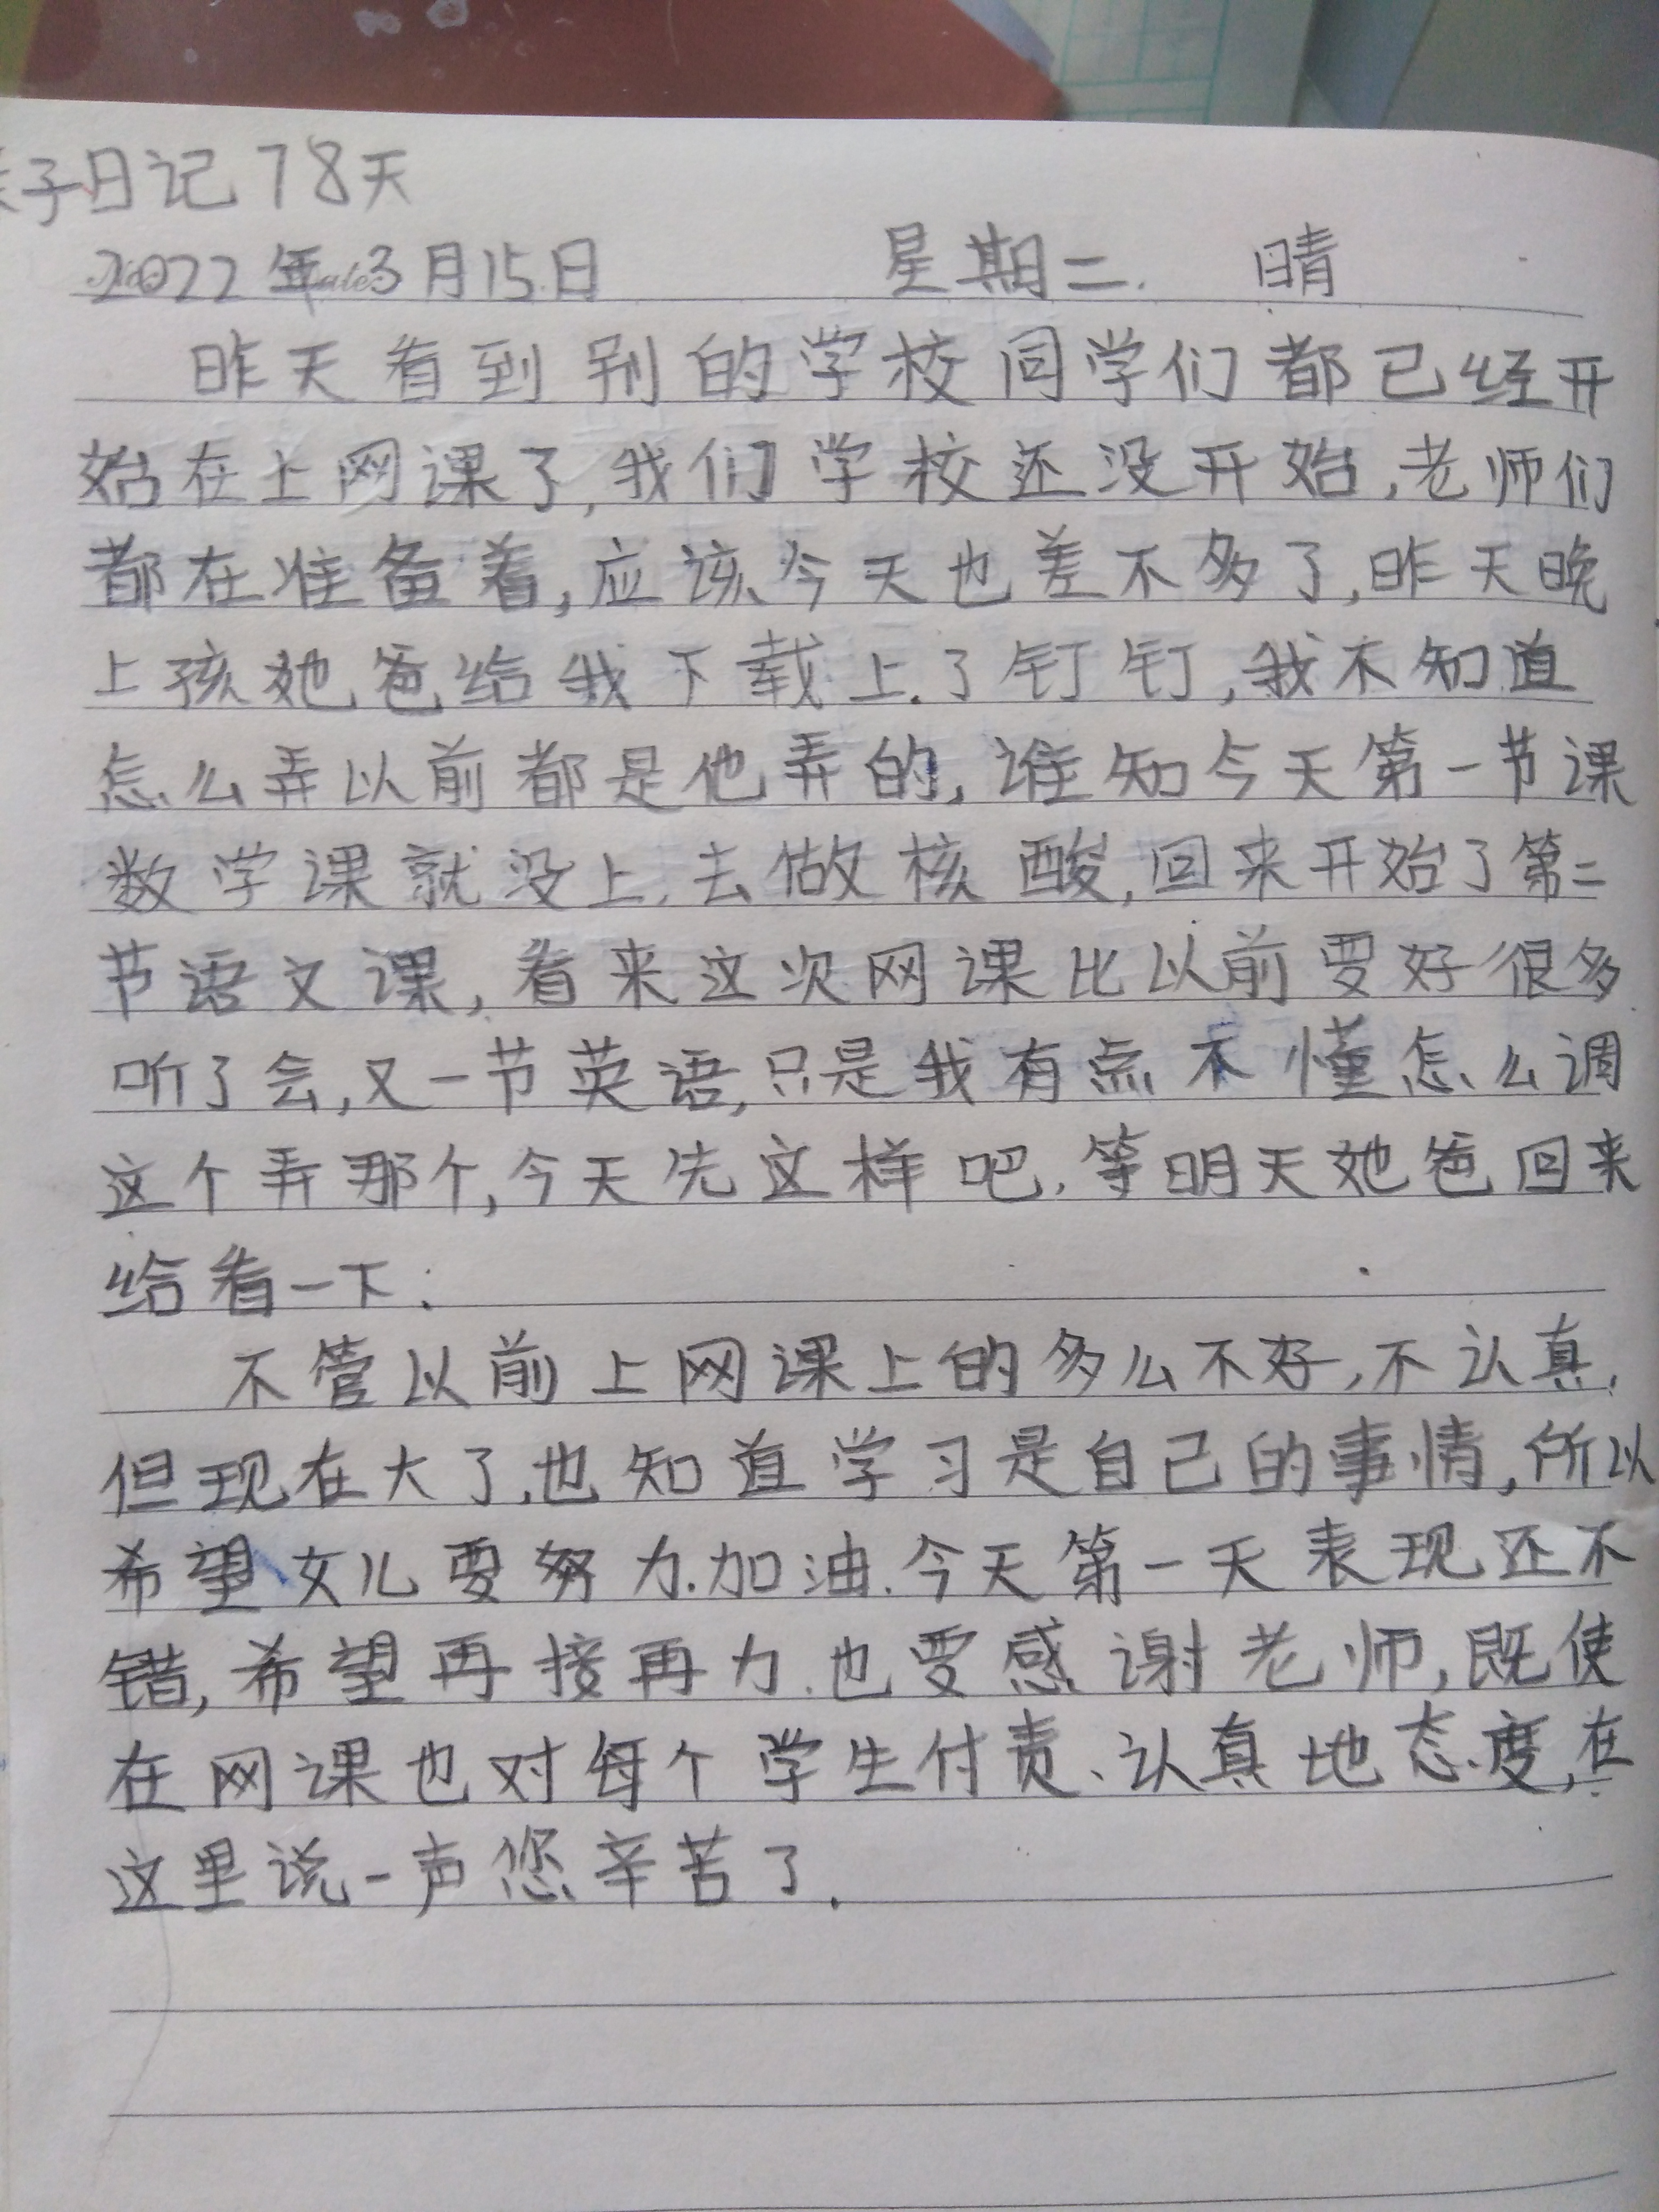 子日记78天
2022年3月15日 星期二. 晴
昨天看到别的学校同学们都已经开
始在上网课了,我们学校还没开始,老师们
都在准备着,应该今天也差不多了,昨天晚
上孩她爸给我下载上.了钉钉,我不知道
怎么弄以前都是他弄的,谁知今天第一节课
数学课就没上.去做核酸,回来开始了第二
节语文课,看来这次网课比以前要好很多
听了会,又一节英语,只是我有点不懂怎么调
这个弄那个,今天先这样吧.等明天她爸回来
给看一下.
不管以前上网课上的多么不好,不认真.
但现在大了.也知道学习是自己的事情,所以
希望女儿要努力.加油.今天第一天表现还不
错,希望再接再力.也要感谢老师,既使
在网课也对每个学生付责、认真地态度,在
这里说一声您辛苦了.